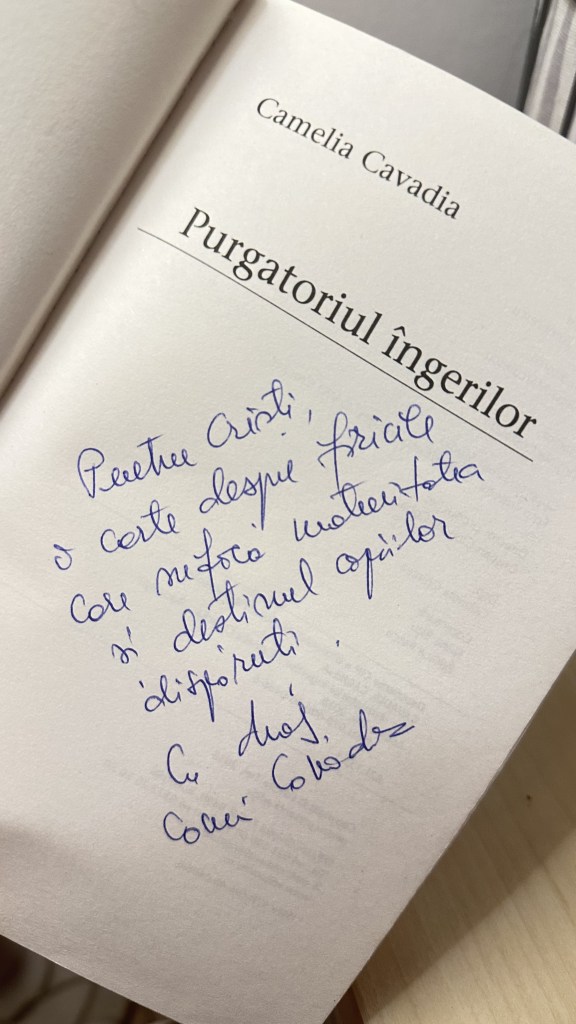 Camelia Cavadia
Purgatoriul îngerilor
Pentru Cristi,
o carte despre fricile
care sufocă maternitatea
și destinul copiilor
dispăruți.
Cu drag,
Cami Cavadia